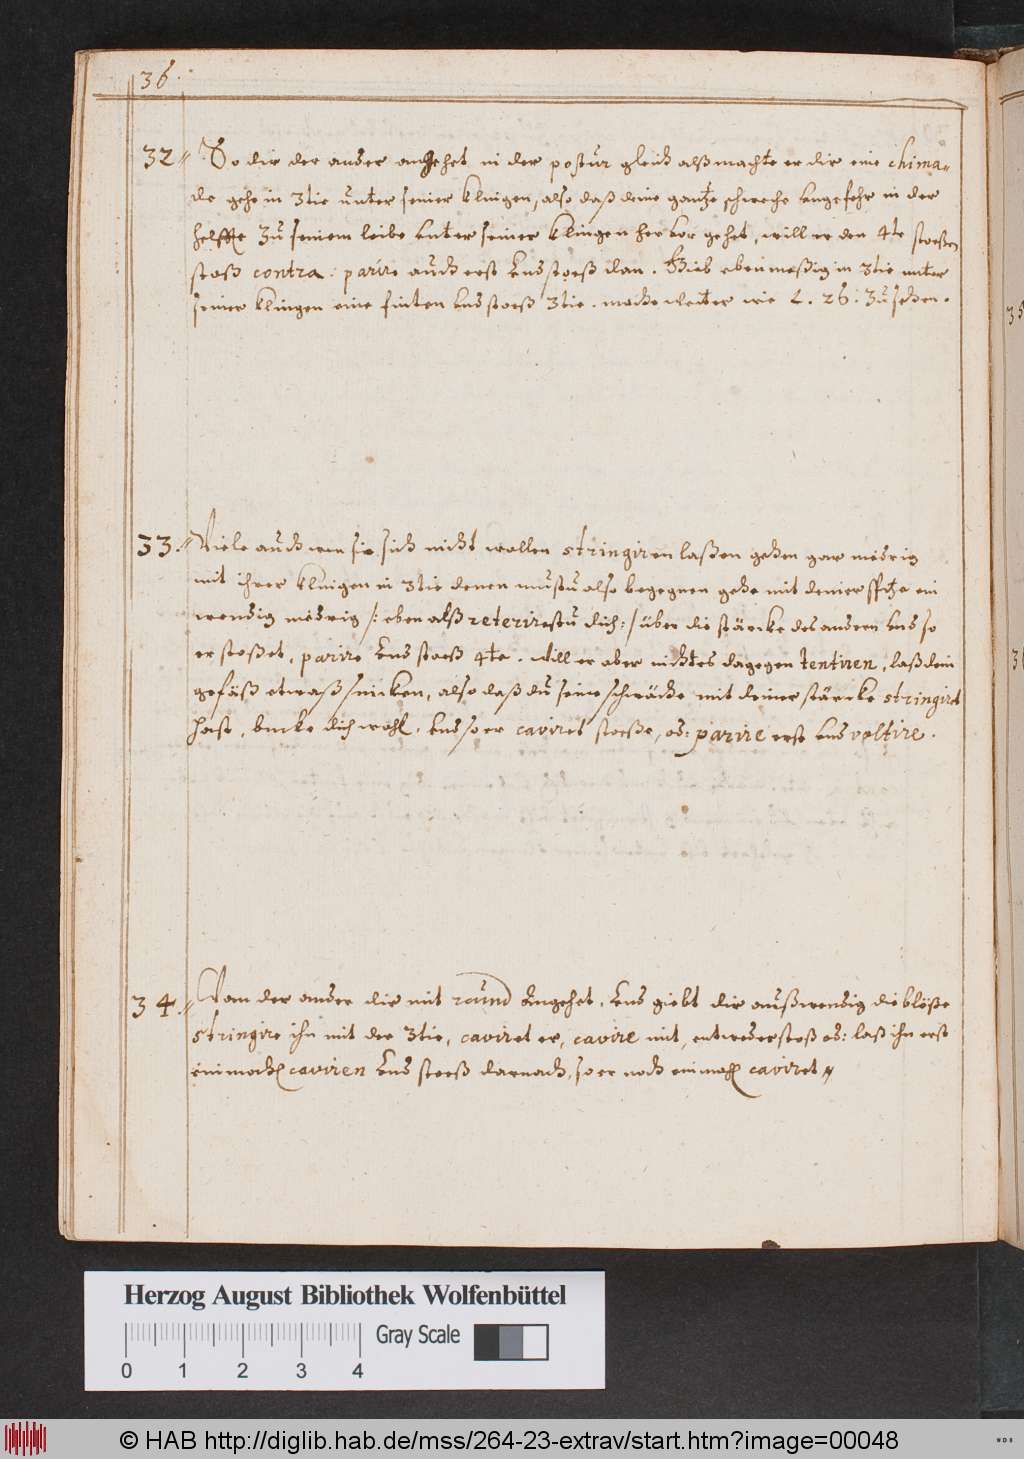 36.
32 // So dir der ander angehet in der postur gleich alß machte er dir eine chima-
de gehe in 3tie unter seiner Klingen, also daß deine gantze schweche ungefehr in der
helffte zu seinem leibe unter seiner Klingen hervor gehet, will er den 4te stoeßen
stoß contra: parire auch erst und stoeß dan. Gieb ebenmeßig in 3tie unter
seiner Klingen eine finten und stoeß 3tie. mache weiter wie L. 26. zu sehen.
33. // Viele auch wen sie sich nicht wollen stringiren laßen gehen gar niedrig
mit ihrer Klingen in 3tie denen mustu also begegnen gehe mit deiner spitze ein
wendig niedrig /: eben alß reterirestu dich :/ über die stärcke des andern und so
er stoßet, parire und stoeß 4te. Will er aber nichtes dagegen tentiren, laß dein
gefäß etwaß sincken, also daß du seine schwäche mit deiner stärcke stringiret
hast, bucke dich wohl, und so er caviret stoeße, od: parire erst und voltire.
34. // Wan der ander dir mit round angehet, und giebt dir außwendig die blöße
stringire ihn mit der 3tie, caviret er, cavire mit, entweder stoß od: laß ihn erst
einmahl caviren und stoeß darnach, so er noch einmahl caviret //
35
3
Herzog August Bibliothek Wolfenbüttel
Gray Scale
0 1 2 3 4
© HAB http://diglib.hab.de/mss/264-23-extrav/start.htm?image=00048